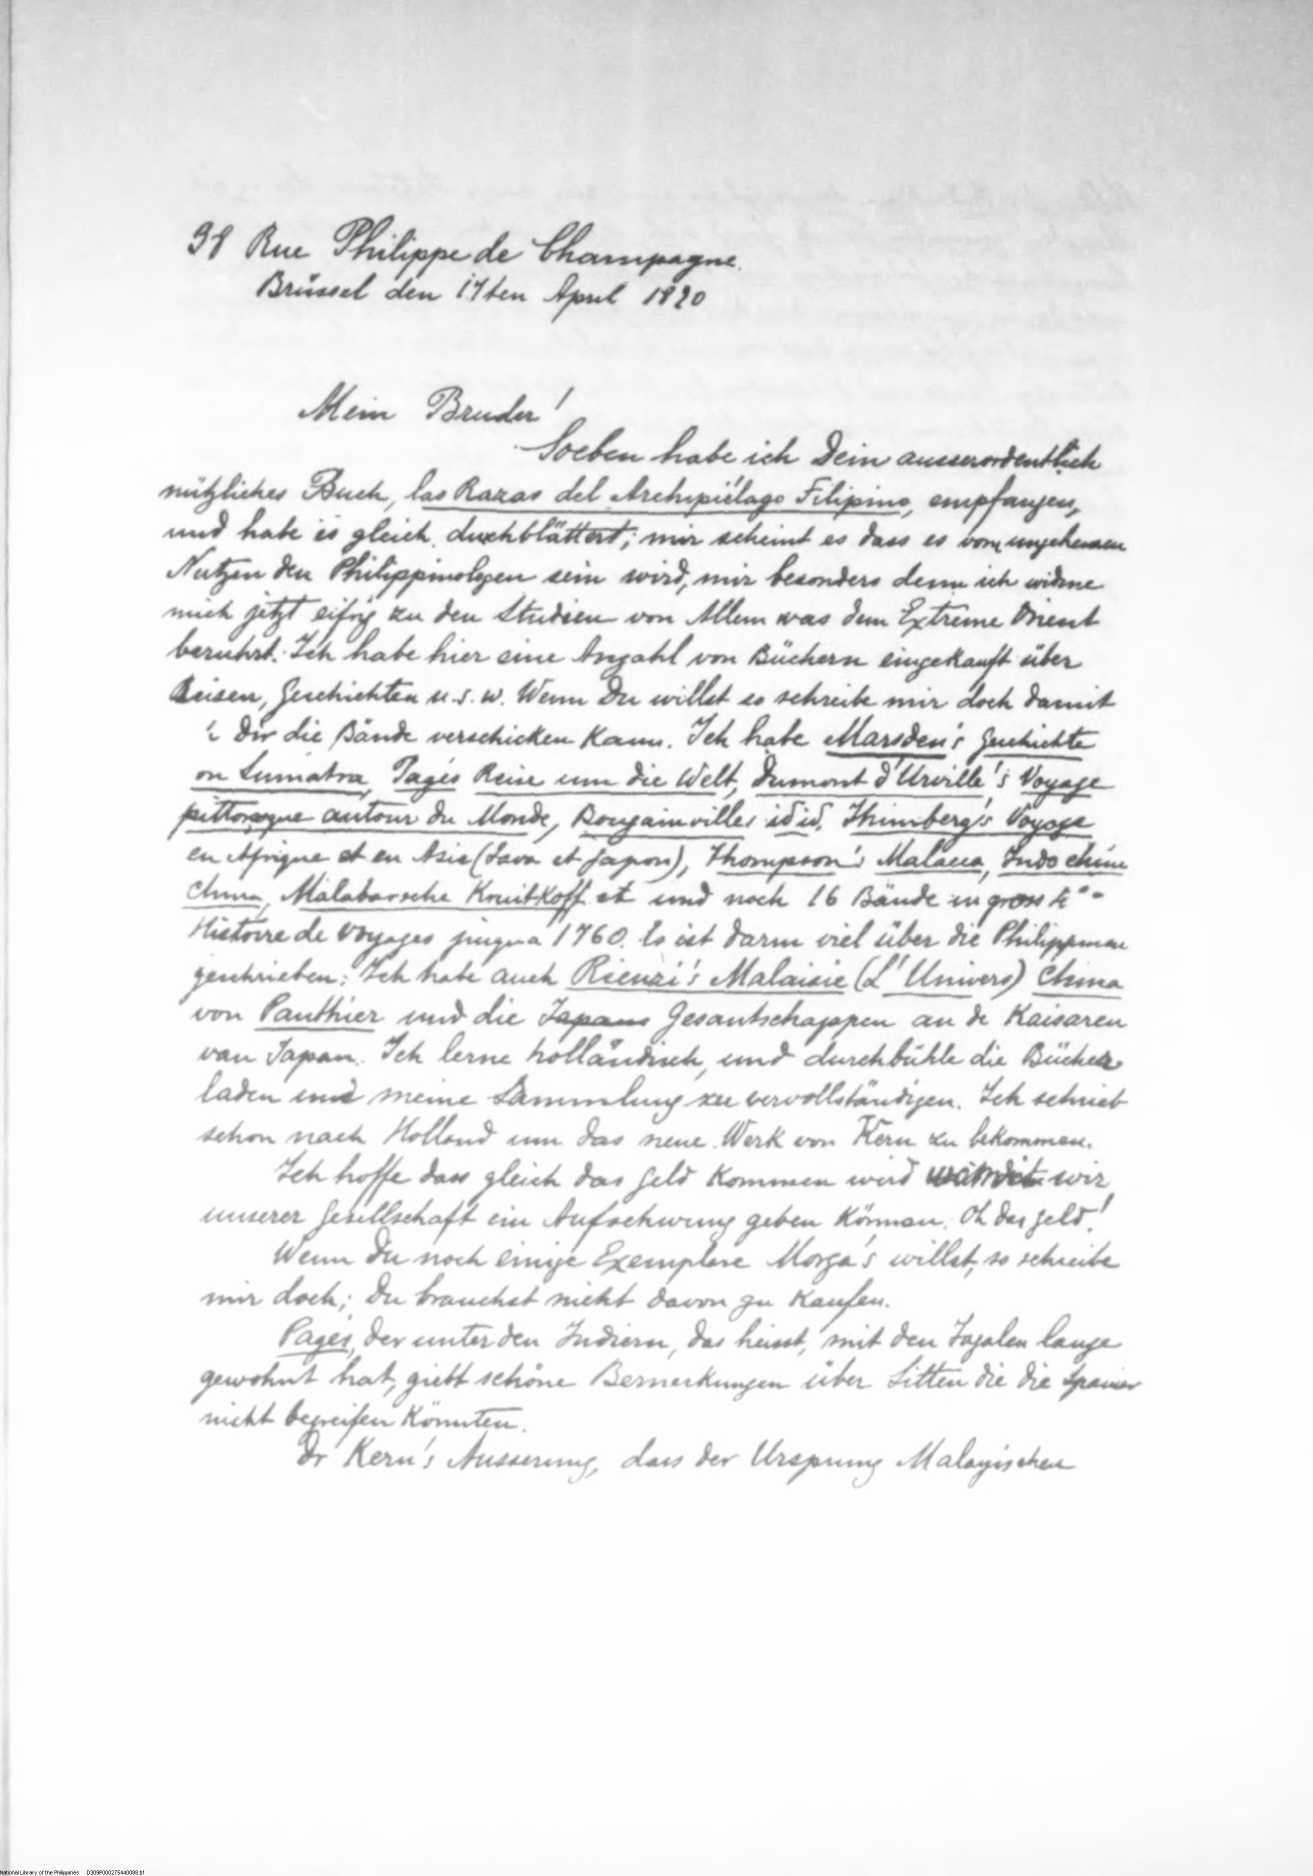 38 Rue Philippe de Champagne.
Brüssel den 17ten April 1890
Mein Bruder!
Soeben habe ich Dein ausserordentlich
nützliches Buch, las Razas del Archipiélago Filipino, empfangen,
und habe es gleich durchblättert; mir scheint es dass es vom ungeheuren
Nutzen den Philippinologen sein wird, mir besonders denn ich widme
mich jetzt eifrig zu den Studien von Allem was dem Extrême Orient
beruhrt. Ich habe hier eine Anzahl von Büchern eingekauft über
Reisen, Geschichten u. s. w. Wenn Du willst so schreibe mir doch damit
Dir die Bände verschicken kann. Ich habe Marsden's Geschichte
on Sumatra, Pagés Reise um die Welt, Dumont d'Urville's Voyage
pittoresque autour du Monde, Bougainvilles id id. Thunberg's Voyage
en Afrique et en Asie (Java et Japon), Thompson's Malacca, Indo chine
China, Malabarsche Kruitkoff et und noch 16 Bände in gross 4°
Histoire de Voyages jusqua 1760. Es ist darin viel über die Philippinen
geschrieben: Ich habe auch Rienzi's Malaisie (L'Univers) China
von Pauthier und die Japans Gesantschappen an de Kaisaren
van Japan. Ich lerne holländisch, und durchbühle die Bücher
laden um meine Sammlung zu vervollständigen. Ich schrieb
schon nach Holland um das neue Werk von Kern zu bekommen.
Ich hoffe dass gleich das Geld kommen wird wir
unserer Gesellschaft ein Aufschwung geben können. Oh das Geld!
Wenn Du noch einige Exemplare Morga's willst, so schreibe
mir doch; Du brauchst nicht davon zu kaufen.
Pagés, der unter den Indiern, das heisst, mit den Tagalen lange
gewohnt hat, giebt schöne Bemerkungen über Sitten die die Spanier
nicht begreifen könnten.
Dr Kern's Äusserung, dass der Ursprung Malayischen
National Library of the Philippines